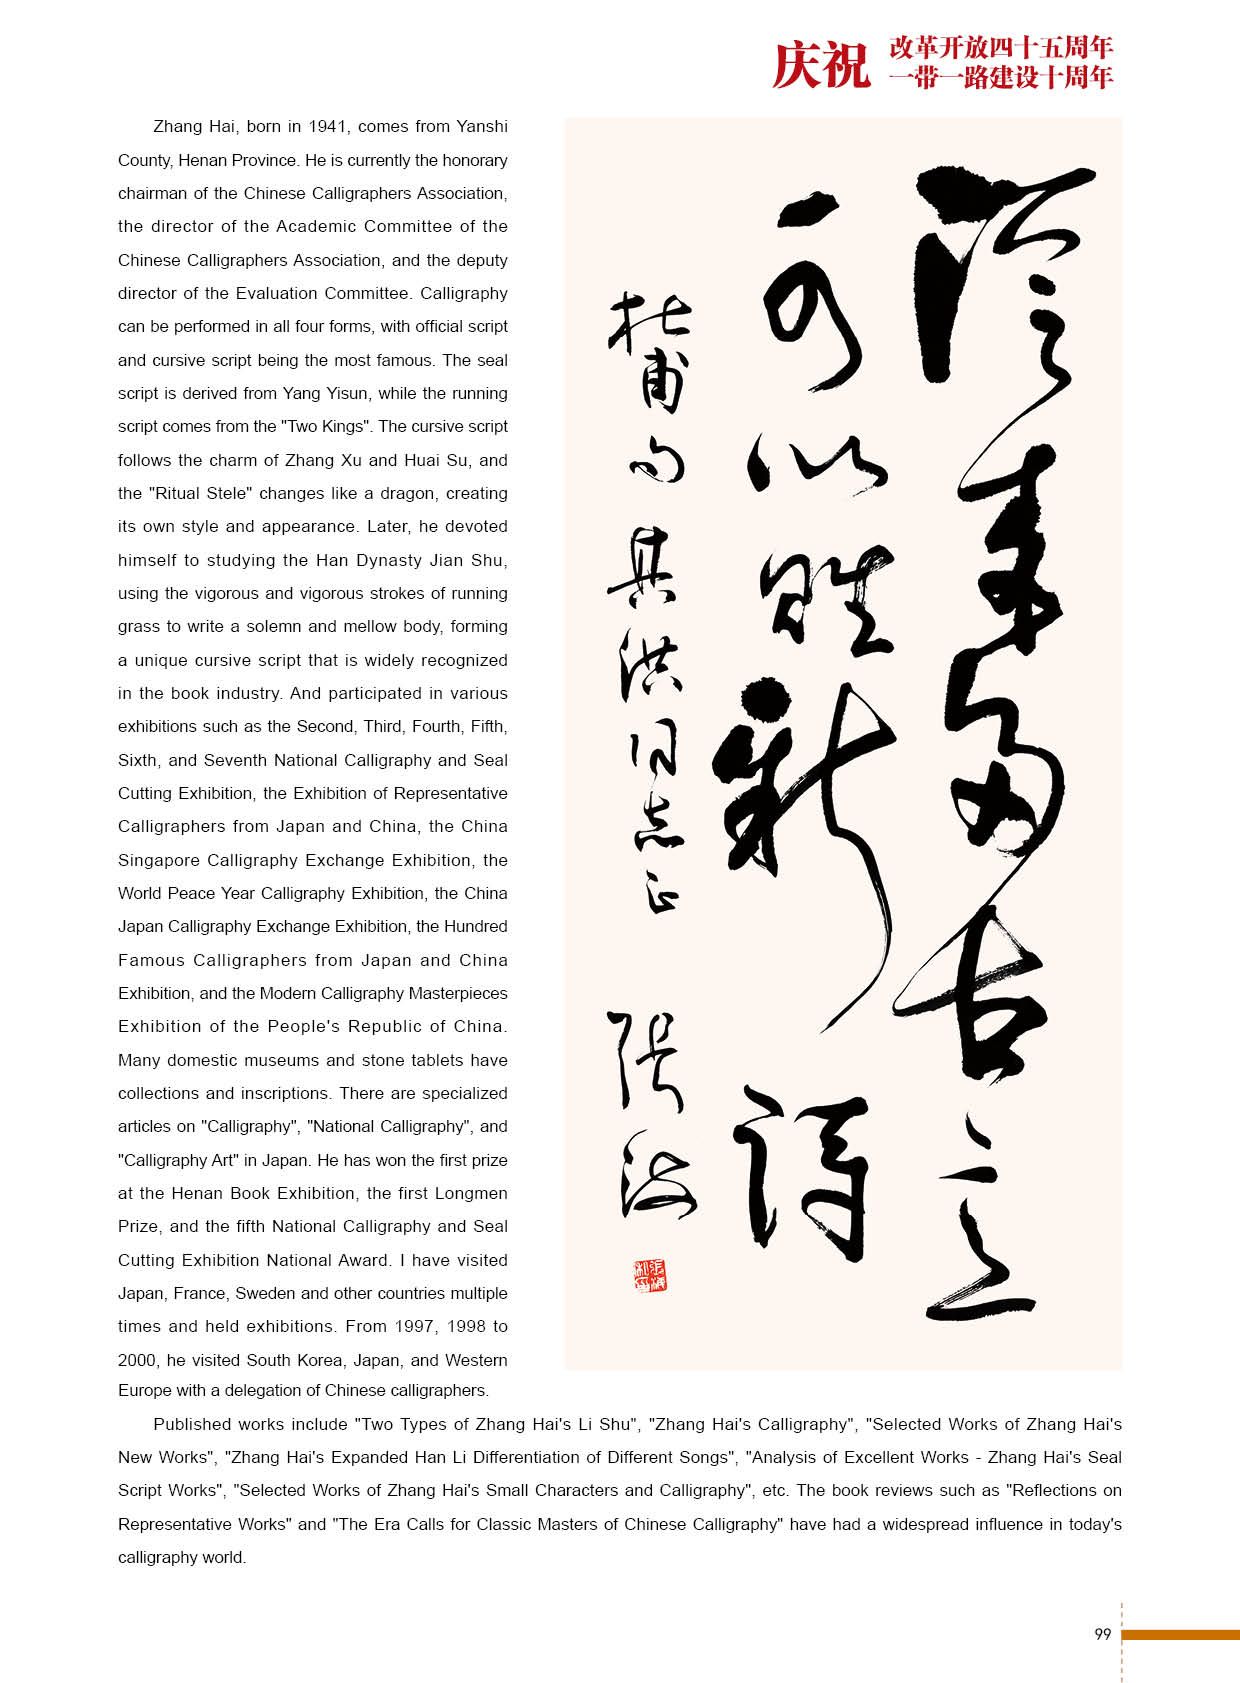 庆祝
改革开放四十五周年
一带一路建设十周年
Zhang Hai, born in 1941, comes from Yanshi
County, Henan Province. He is currently the honorary
chairman of the Chinese Calligraphers Association,
the director of the Academic Committee of the
Chinese Calligraphers Association, and the deputy
director of the Evaluation Committee. Calligraphy
can be performed in all four forms, with official script
and cursive script being the most famous. The seal
script is derived from Yang Yisun, while the running
script comes from the "Two Kings". The cursive script
follows the charm of Zhang Xu and Huai Su, and
the "Ritual Stele" changes like a dragon, creating
its own style and appearance. Later, he devoted
himself to studying the Han Dynasty Jian Shu,
using the vigorous and vigorous strokes of running
grass to write a solemn and mellow body, forming
a unique cursive script that is widely recognized
in the book industry. And participated in various
exhibitions such as the Second, Third, Fourth, Fifth,
Sixth, and Seventh National Calligraphy and Seal
Cutting Exhibition, the Exhibition of Representative
Calligraphers from Japan and China, the China
Singapore Calligraphy Exchange Exhibition, the
World Peace Year Calligraphy Exhibition, the China
Japan Calligraphy Exchange Exhibition, the Hundred
Famous Calligraphers from Japan and China
Exhibition, and the Modern Calligraphy Masterpieces
Exhibition of the People's Republic of China.
Many domestic museums and stone tablets have
collections and inscriptions. There are specialized
articles on "Calligraphy", "National Calligraphy", and
"Calligraphy Art" in Japan. He has won the first prize
at the Henan Book Exhibition, the first Longmen
Prize, and the fifth National Calligraphy and Seal
Cutting Exhibition National Award. I have visited
Japan, France, Sweden and other countries multiple
times and held exhibitions. From 1997, 1998 to
2000, he visited South Korea, Japan, and Western
Europe with a delegation of Chinese calligraphers.
從来多古意
可以賦新詩
杜甫句 其洪同志正 张海
Published works include "Two Types of Zhang Hai's Li Shu", "Zhang Hai's Calligraphy", "Selected Works of Zhang Hai's
New Works", "Zhang Hai's Expanded Han Li Differentiation of Different Songs", "Analysis of Excellent Works - Zhang Hai's Seal
Script Works", "Selected Works of Zhang Hai's Small Characters and Calligraphy", etc. The book reviews such as "Reflections on
Representative Works" and "The Era Calls for Classic Masters of Chinese Calligraphy" have had a widespread influence in today's
calligraphy world.
99